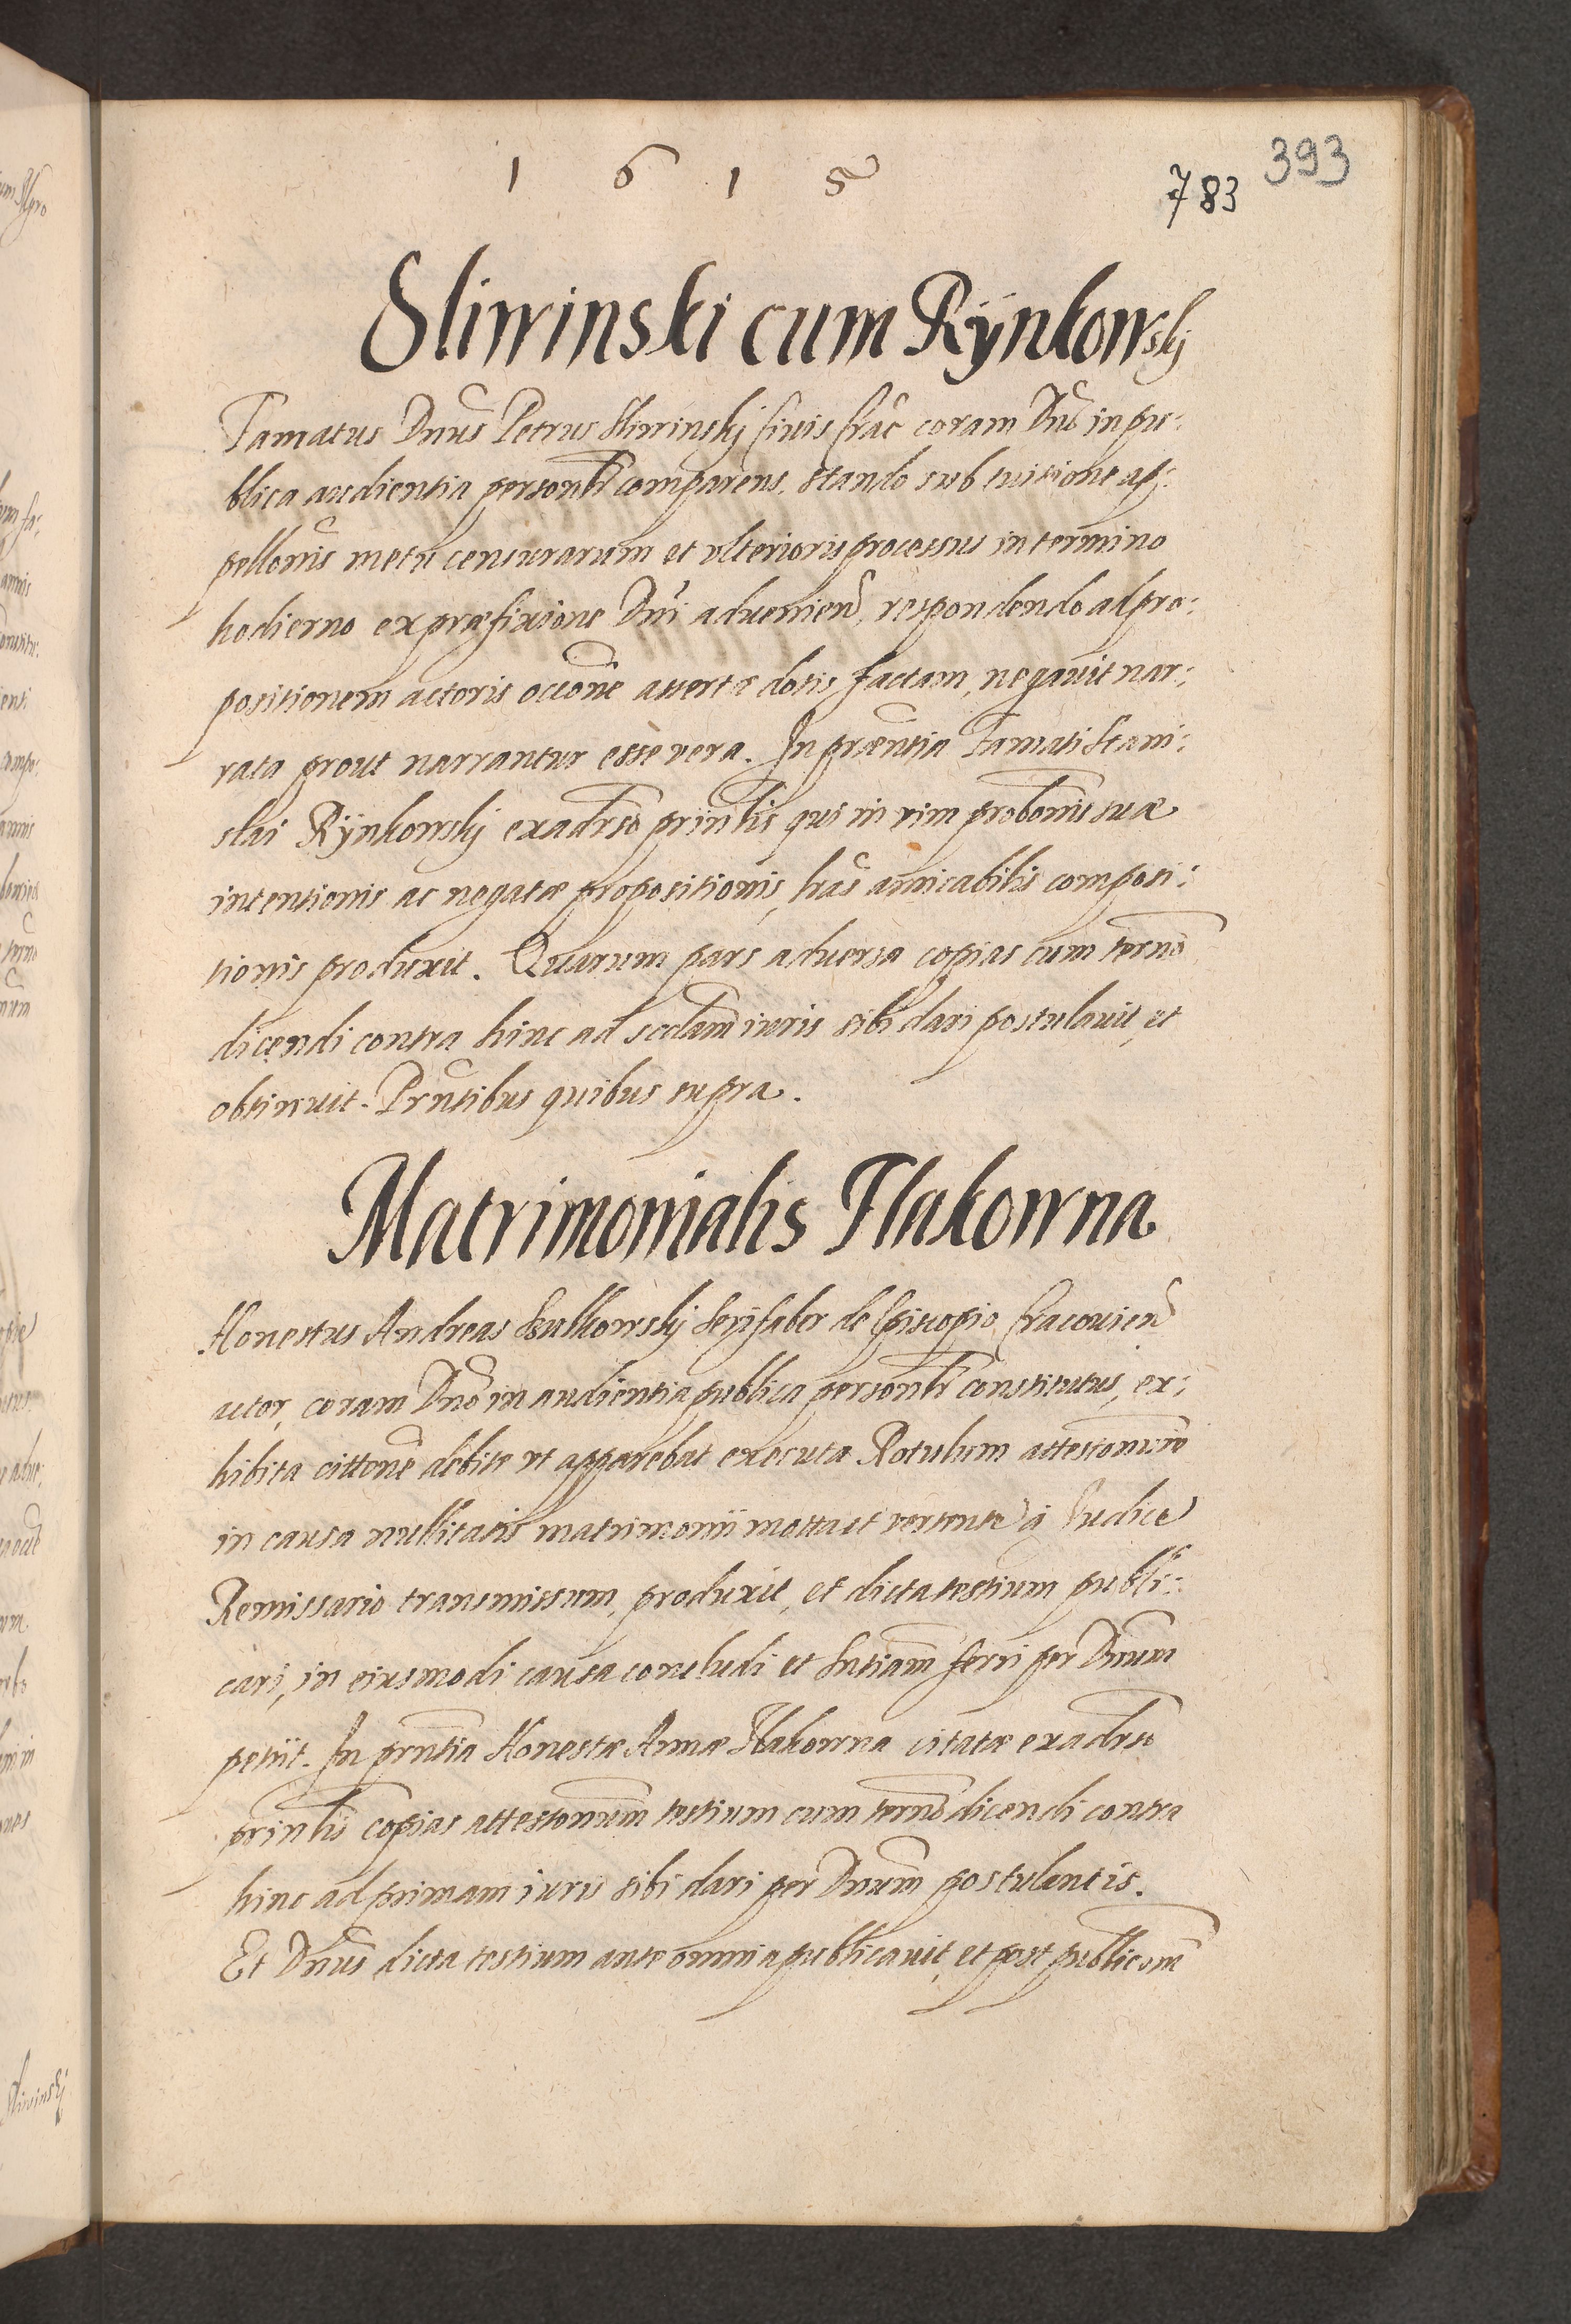 1 6 1 5
783 393
Sliwinski cum Rÿnkowskj
Famatus Dnus Petrus Sliwinskj Ciuis Crac coram Dno in pu:
blica audientia personlr comparens, stando sub tuitione ap:
pellonis metu censurarum et vlterioris processus in termino
hodierno ex præfixione Dni adueniend, respondendo ad pro:
positionem actoris occone assertæ dotis factam, negauit nar:
rata prout narrantur esse vera. In præntia Famati Stani:
slai Rÿnkowskj exadrso prinlis qui in vim probonis suæ
intentionis ac negatæ propositionis, lras amicabilis composi:
tionis produxit. Quarum pars aduersa copias cum termo
dicendi contra hinc ad scdam iuris sibi dari postulauit, et
obtinuit. Prntibus quibus supra.
Matrimonialis Flakowna
Honestus Andreas Sulkowskj Serifaber de Episcopio Cracouien
actor, coram Dno in audientia publica personlr constitutus, ex:
hibita cittone debite vt apparebat executa Rotulum attestonum
in causa nullitatis matrimonii mota et vertente à Iudice
Remissario transmissum, produxit, et dicta testium publi:
cari, in eiusmodi causa concludi et sntiam ferri per Dnum
petiit. In prntia Honestæ Annæ Flakowna citatæ exadrso
prinlis copias attestonum testium cum termo dicendi contra
hinc ad primam iuris sibi dari per Dnum postulantis.
Et Dnus dicta testium ante omnia publicauit, et post publicom